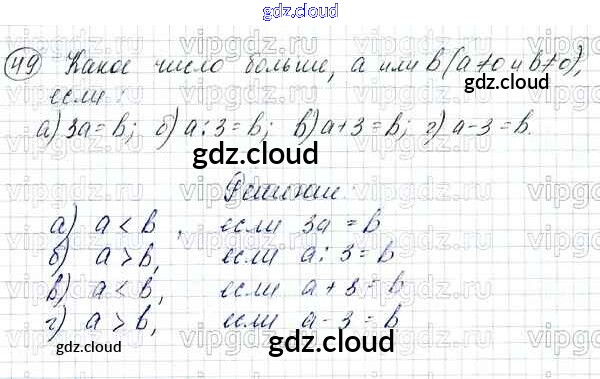 gdz.cloud
49 Какое число больше, а или b (а≠0 и b≠0),
gdz.cloud
если:
а) 3а = b; б) а:3 = b; в) а+3 = b; г) а-3 = b.
gdz.cloud
Решение:
а) а < b, если 3а = b
б) а > b, если а:3 = b
в) а < b, если а+3 = b
г) а > b, если а-3 = b
gdz.cloud gdz.cloud
vipgdz.ru